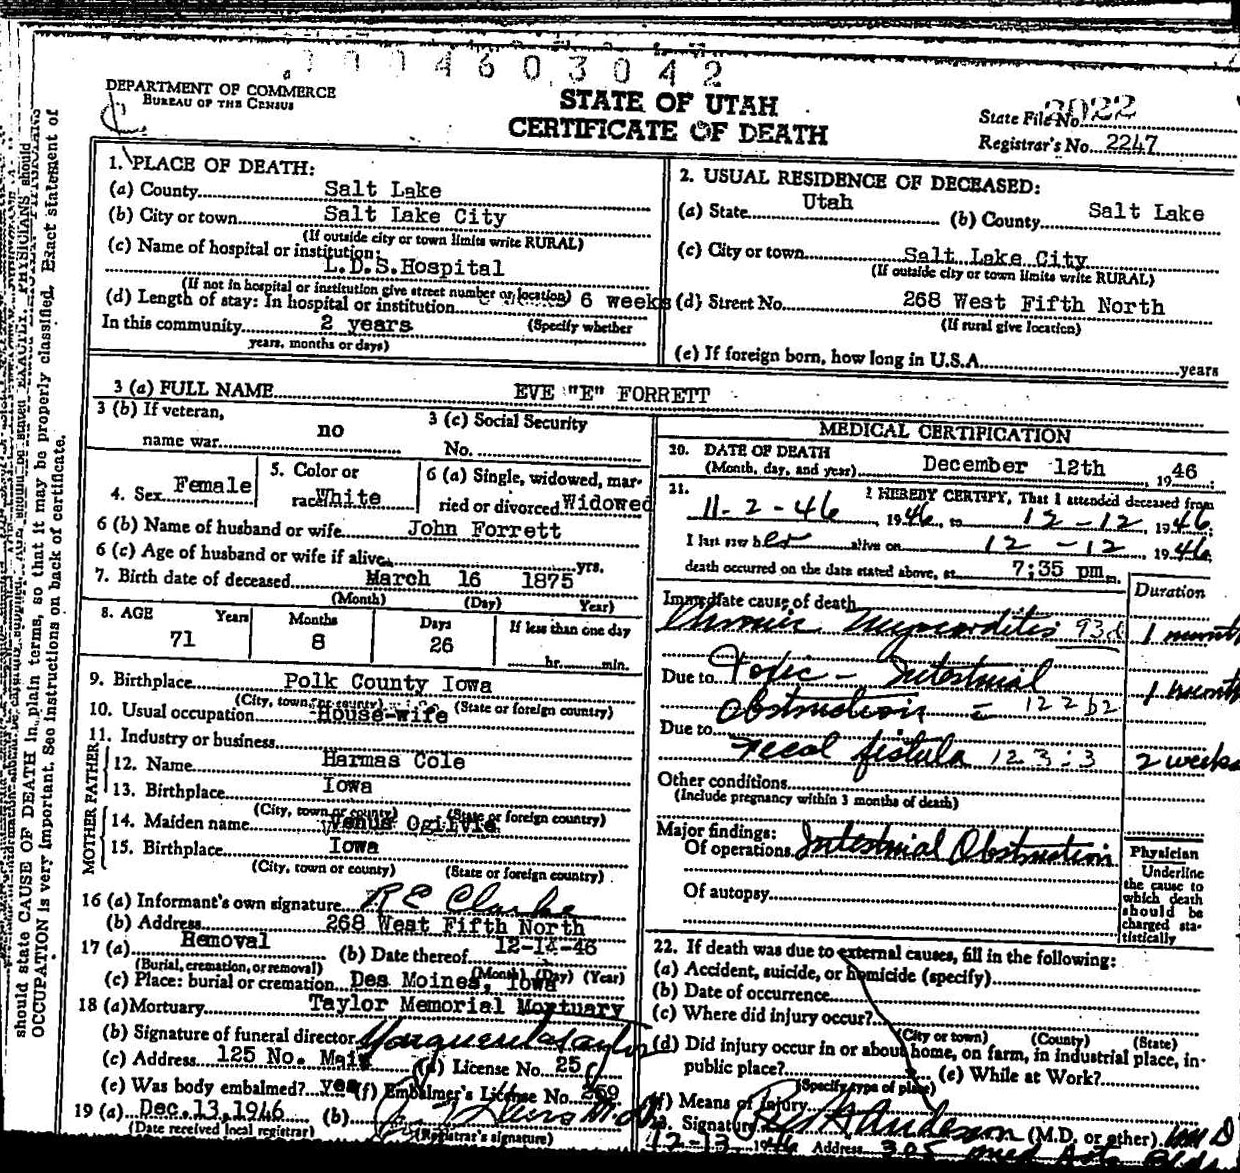 1004603042
DEPARTMENT OF COMMERCE
BUREAU OF THE CENSUS
STATE OF UTAH
CERTIFICATE OF DEATH
State File No. 2022
Registrar's No. 2247
1. PLACE OF DEATH:
(a) County Salt Lake
(b) City or town Salt Lake City
(If outside city or town limits write RURAL)
(c) Name of hospital or institution:
L.D.S. Hospital
(If not in hospital or institution give street number or location)
(d) Length of stay: In hospital or institution 6 weeks
In this community 2 years (Specify whether
years, months or days)
2. USUAL RESIDENCE OF DECEASED:
(a) State Utah (b) County Salt Lake
(c) City or town Salt Lake City
(If outside city or town limits write RURAL)
(d) Street No. 268 West Fifth North
(If rural give location)
(e) If foreign born, how long in U.S.A. years
3 (a) FULL NAME EVE "E" FORRETT
3 (b) If veteran,
name war no
3 (c) Social Security
No.
4. Sex Female
5. Color or
race White
6 (a) Single, widowed, mar-
ried or divorced Widowed
6 (b) Name of husband or wife John Forrett
6 (c) Age of husband or wife if alive yrs.
7. Birth date of deceased March 16 1875
(Month) (Day) Year)
8. AGE Years Months Days If less than one day
71 8 26 hr. min.
9. Birthplace Polk County Iowa
(City, town or county) (State or foreign country)
10. Usual occupation House-wife
11. Industry or business
FATHER
12. Name Harmas Cole
13. Birthplace Iowa
(City, town or county) (State or foreign country)
MOTHER
14. Maiden name Venus Ogilvie
15. Birthplace Iowa
(City, town or county) (State or foreign country)
16 (a) Informant's own signature R E Clarke
(b) Address 268 West Fifth North
17 (a) Removal (b) Date thereof 12-14-46
(Burial, cremation, or removal) (Month) (Day) (Year)
(c) Place: burial or cremation Des Moines, Iowa
18 (a) Mortuary Taylor Memorial Mortuary
(b) Signature of funeral director
(c) Address 125 No. Main (d) License No. 25
(e) Was body embalmed? yes (f) Embalmer's License No. 259
19 (a) Dec. 13, 1946 (b)
(Date received local registrar) (Registrar's signature)
MEDICAL CERTIFICATION
20. DATE OF DEATH
(Month, day, and year) December 12th 1946
21. I HEREBY CERTIFY, That I attended deceased from
11-2-46, 1946, to 12-12, 1946.
I last saw her alive on 12-12 1946,
death occurred on the date stated above, at 7:35 pm m.
Duration
Immediate cause of death
Chronic Myocarditis 93d 1 month
Due to Toxic - Intestinal 1 month
Obstruction = 122b2
Due to
Fecal fistula 123:3 2 weeks
Other conditions
(Include pregnancy within 3 months of death)
Major findings:
Of operations Intestinal Obstruction
Of autopsy
Physician
Underline
the cause to
which death
should be
charged sta-
tistically
22. If death was due to external causes, fill in the following:
(a) Accident, suicide, or homicide (specify)
(b) Date of occurrence
(c) Where did injury occur?
(City or town) (County) (State)
(d) Did injury occur in or about home, on farm, in industrial place, in-
public place? (e) While at Work?
(Specify type of place)
(f) Means of injury
Signature Anderson (M.D. or other) M D
12-13 1946 Address 305 Med Arts Bldg
should state CAUSE OF DEATH in plain terms, so that it may be properly classified. Exact statement of
OCCUPATION is very important. See instructions on back of certificate.